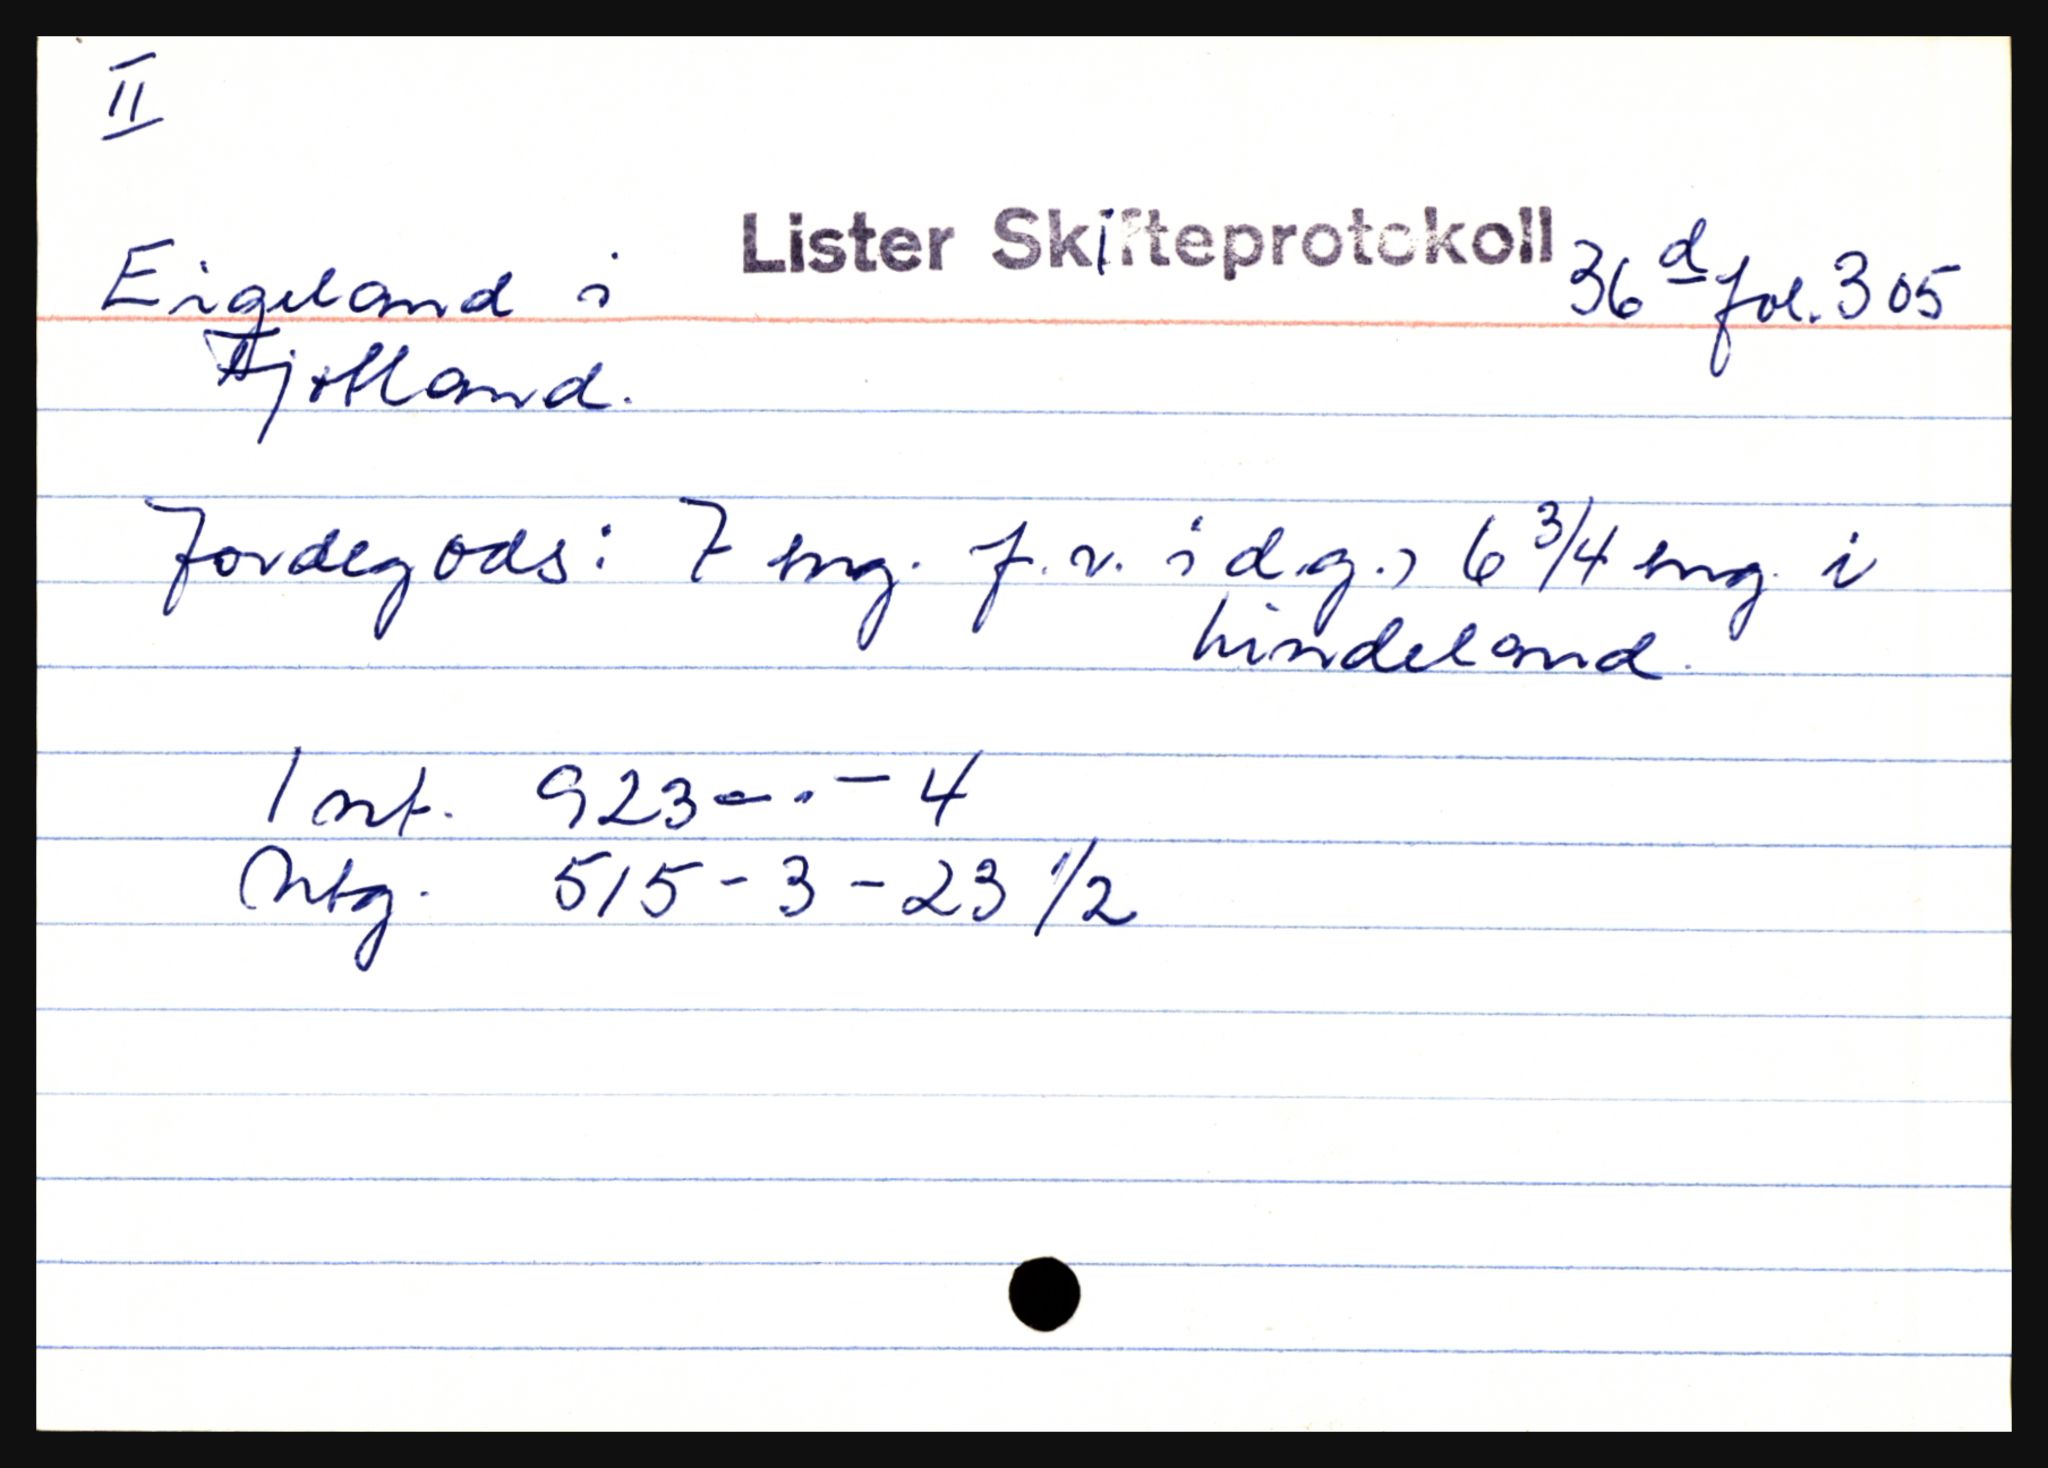 II
Lister Skifteprotokoll 36 d fol. 305
Eigeland i
Fjotland.
Jordegods: 7 mg. f. r. i d.g., 6 3/4 mg. i
Lindeland.
Int. 923 - . - 4
Ntg. 515 - 3 - 23 1/2